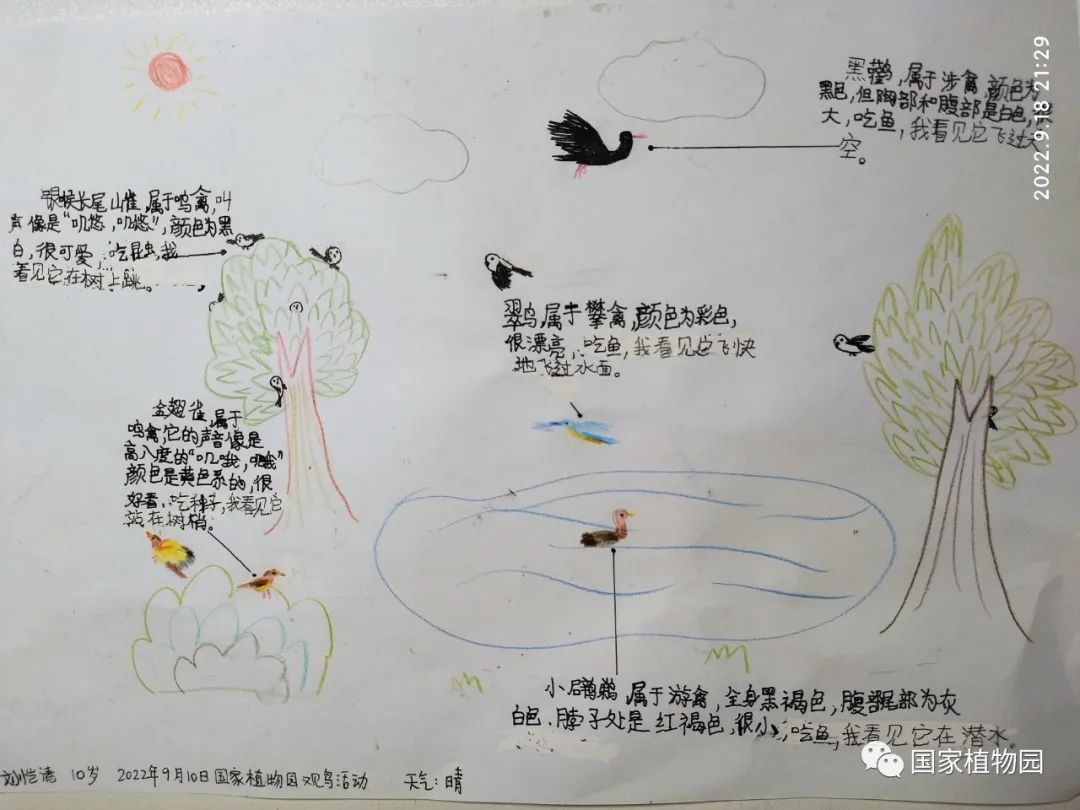 黑鹳,属于涉禽,颜色为
黑色,但胸部和腹部是白色,很
大,吃鱼,我看见它飞过天
空。
2022.9.18 21:29
银喉长尾山雀,属于鸣禽,叫
声像是“叽悠,叽悠”,颜色为黑
白,很可爱,吃昆虫,我
看见它在树上跳。
翠鸟,属于攀禽,颜色为彩色,
很漂亮,吃鱼,我看见它飞快
地飞过水面。
金翅雀,属于
鸣禽,它的声音像是
高八度的“叽哦,叽哦”
颜色是黄色系的,很
好看,吃种子,我看见它
站在树梢。
小䴙䴘,属于游禽,全身黑褐色,腹部尾部为灰
白色、脖子处是红褐色,很小,吃鱼,我看见它在潜水。
10岁 2022年9月10日国家植物园观鸟活动 天气:晴
国家植物园